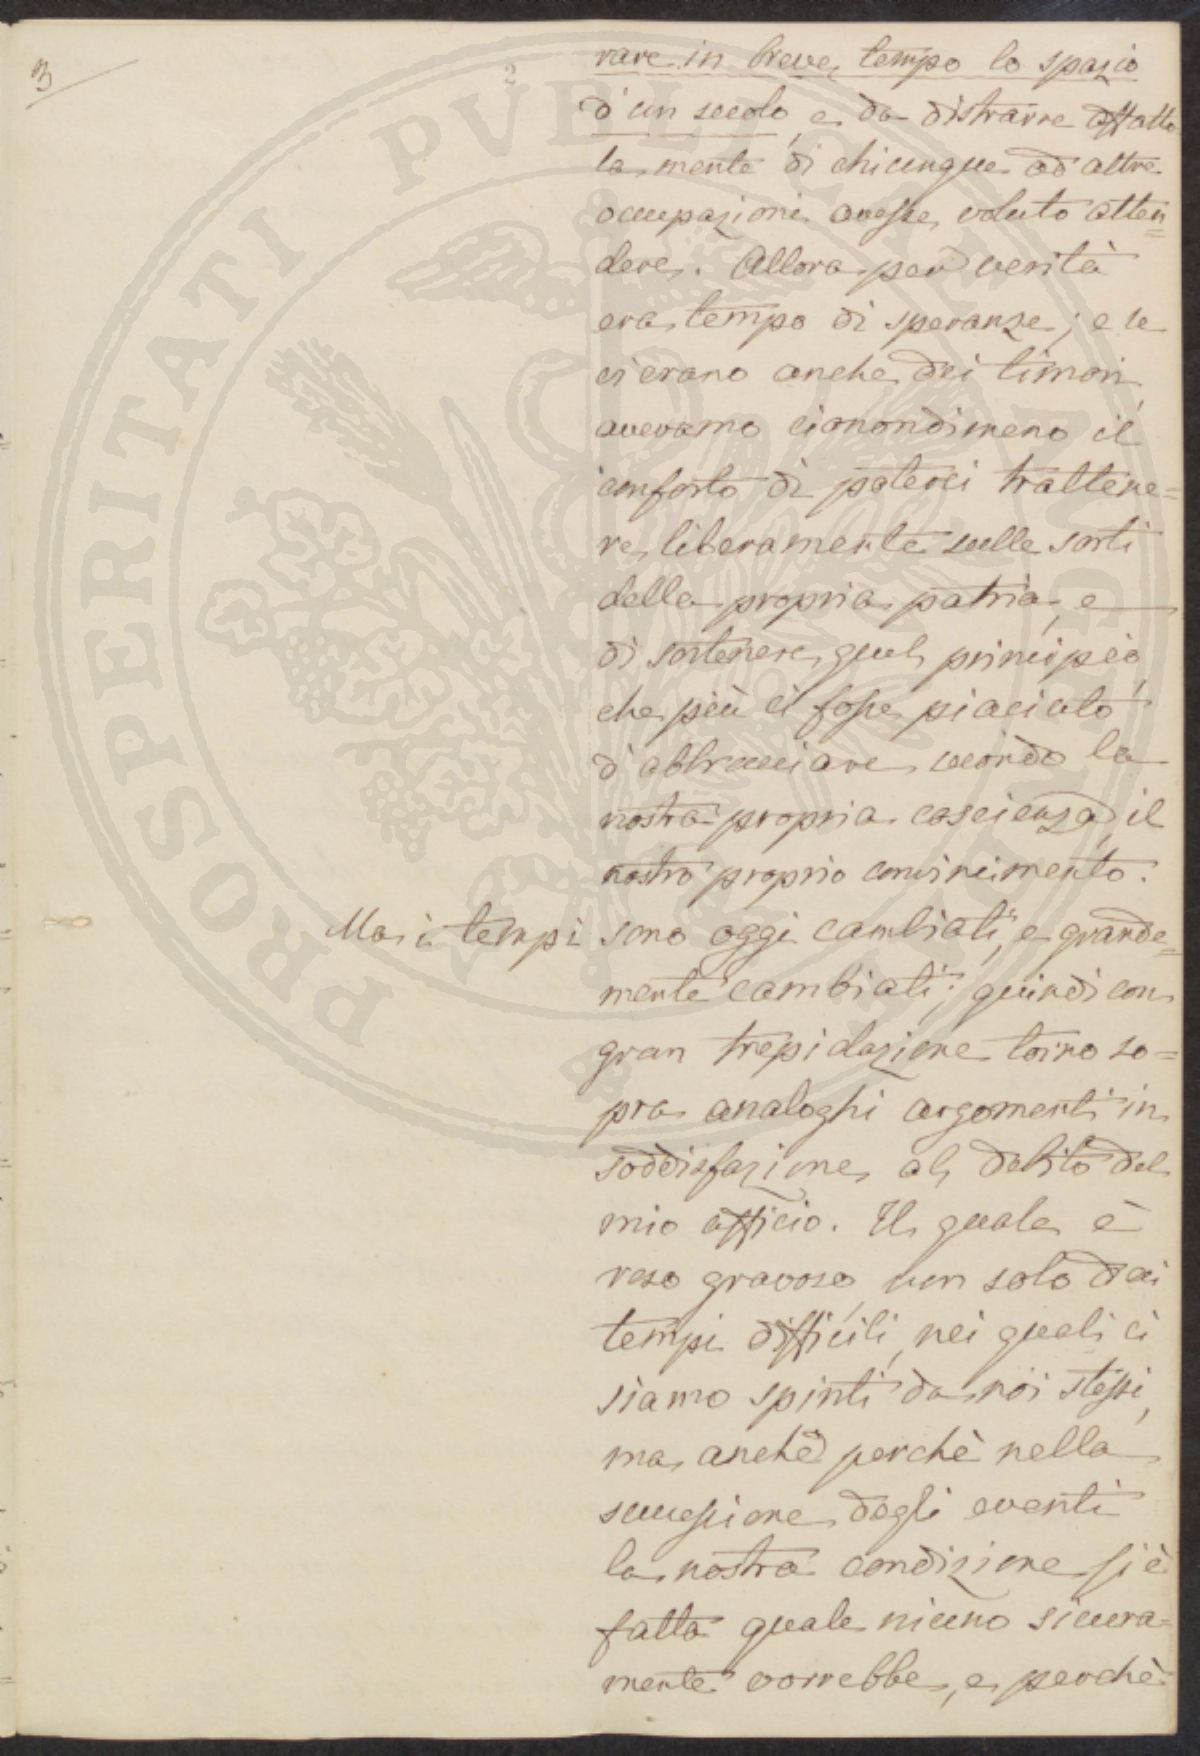 3
rare in breve tempo lo spazio
d'un secolo, e da distrarre affatto
la mente di chiunque ad altre
occupazioni avesse voluto atten=
dere. Allora per verità
era tempo di speranze; e se
ci erano anche dei timori,
avevamo cionondimeno il
conforto di poterci trattene=
re liberamente sulle sorti
della propria patria, e
di sostenere quel principio,
che più ci fosse piaciuto
d'abbracciare secondo la
nostra propria coscienza, il
nostro proprio convincimento.
Ma i tempi sono oggi cambiati, e grande=
mente cambiati; quindi con
gran trepidazione torno so=
pra analoghi argomenti in
soddisfazione al debito del
mio officio. Il quale è
reso gravoso, non solo dai
tempi difficili, nei quali ci
siamo spinti da noi stessi,
ma anche perchè nella
successione degli eventi
la nostra condizione si è
fatta quale niuno sicura=
mente vorrebbe, e perchè
PROSPERITATI PUBLICAE